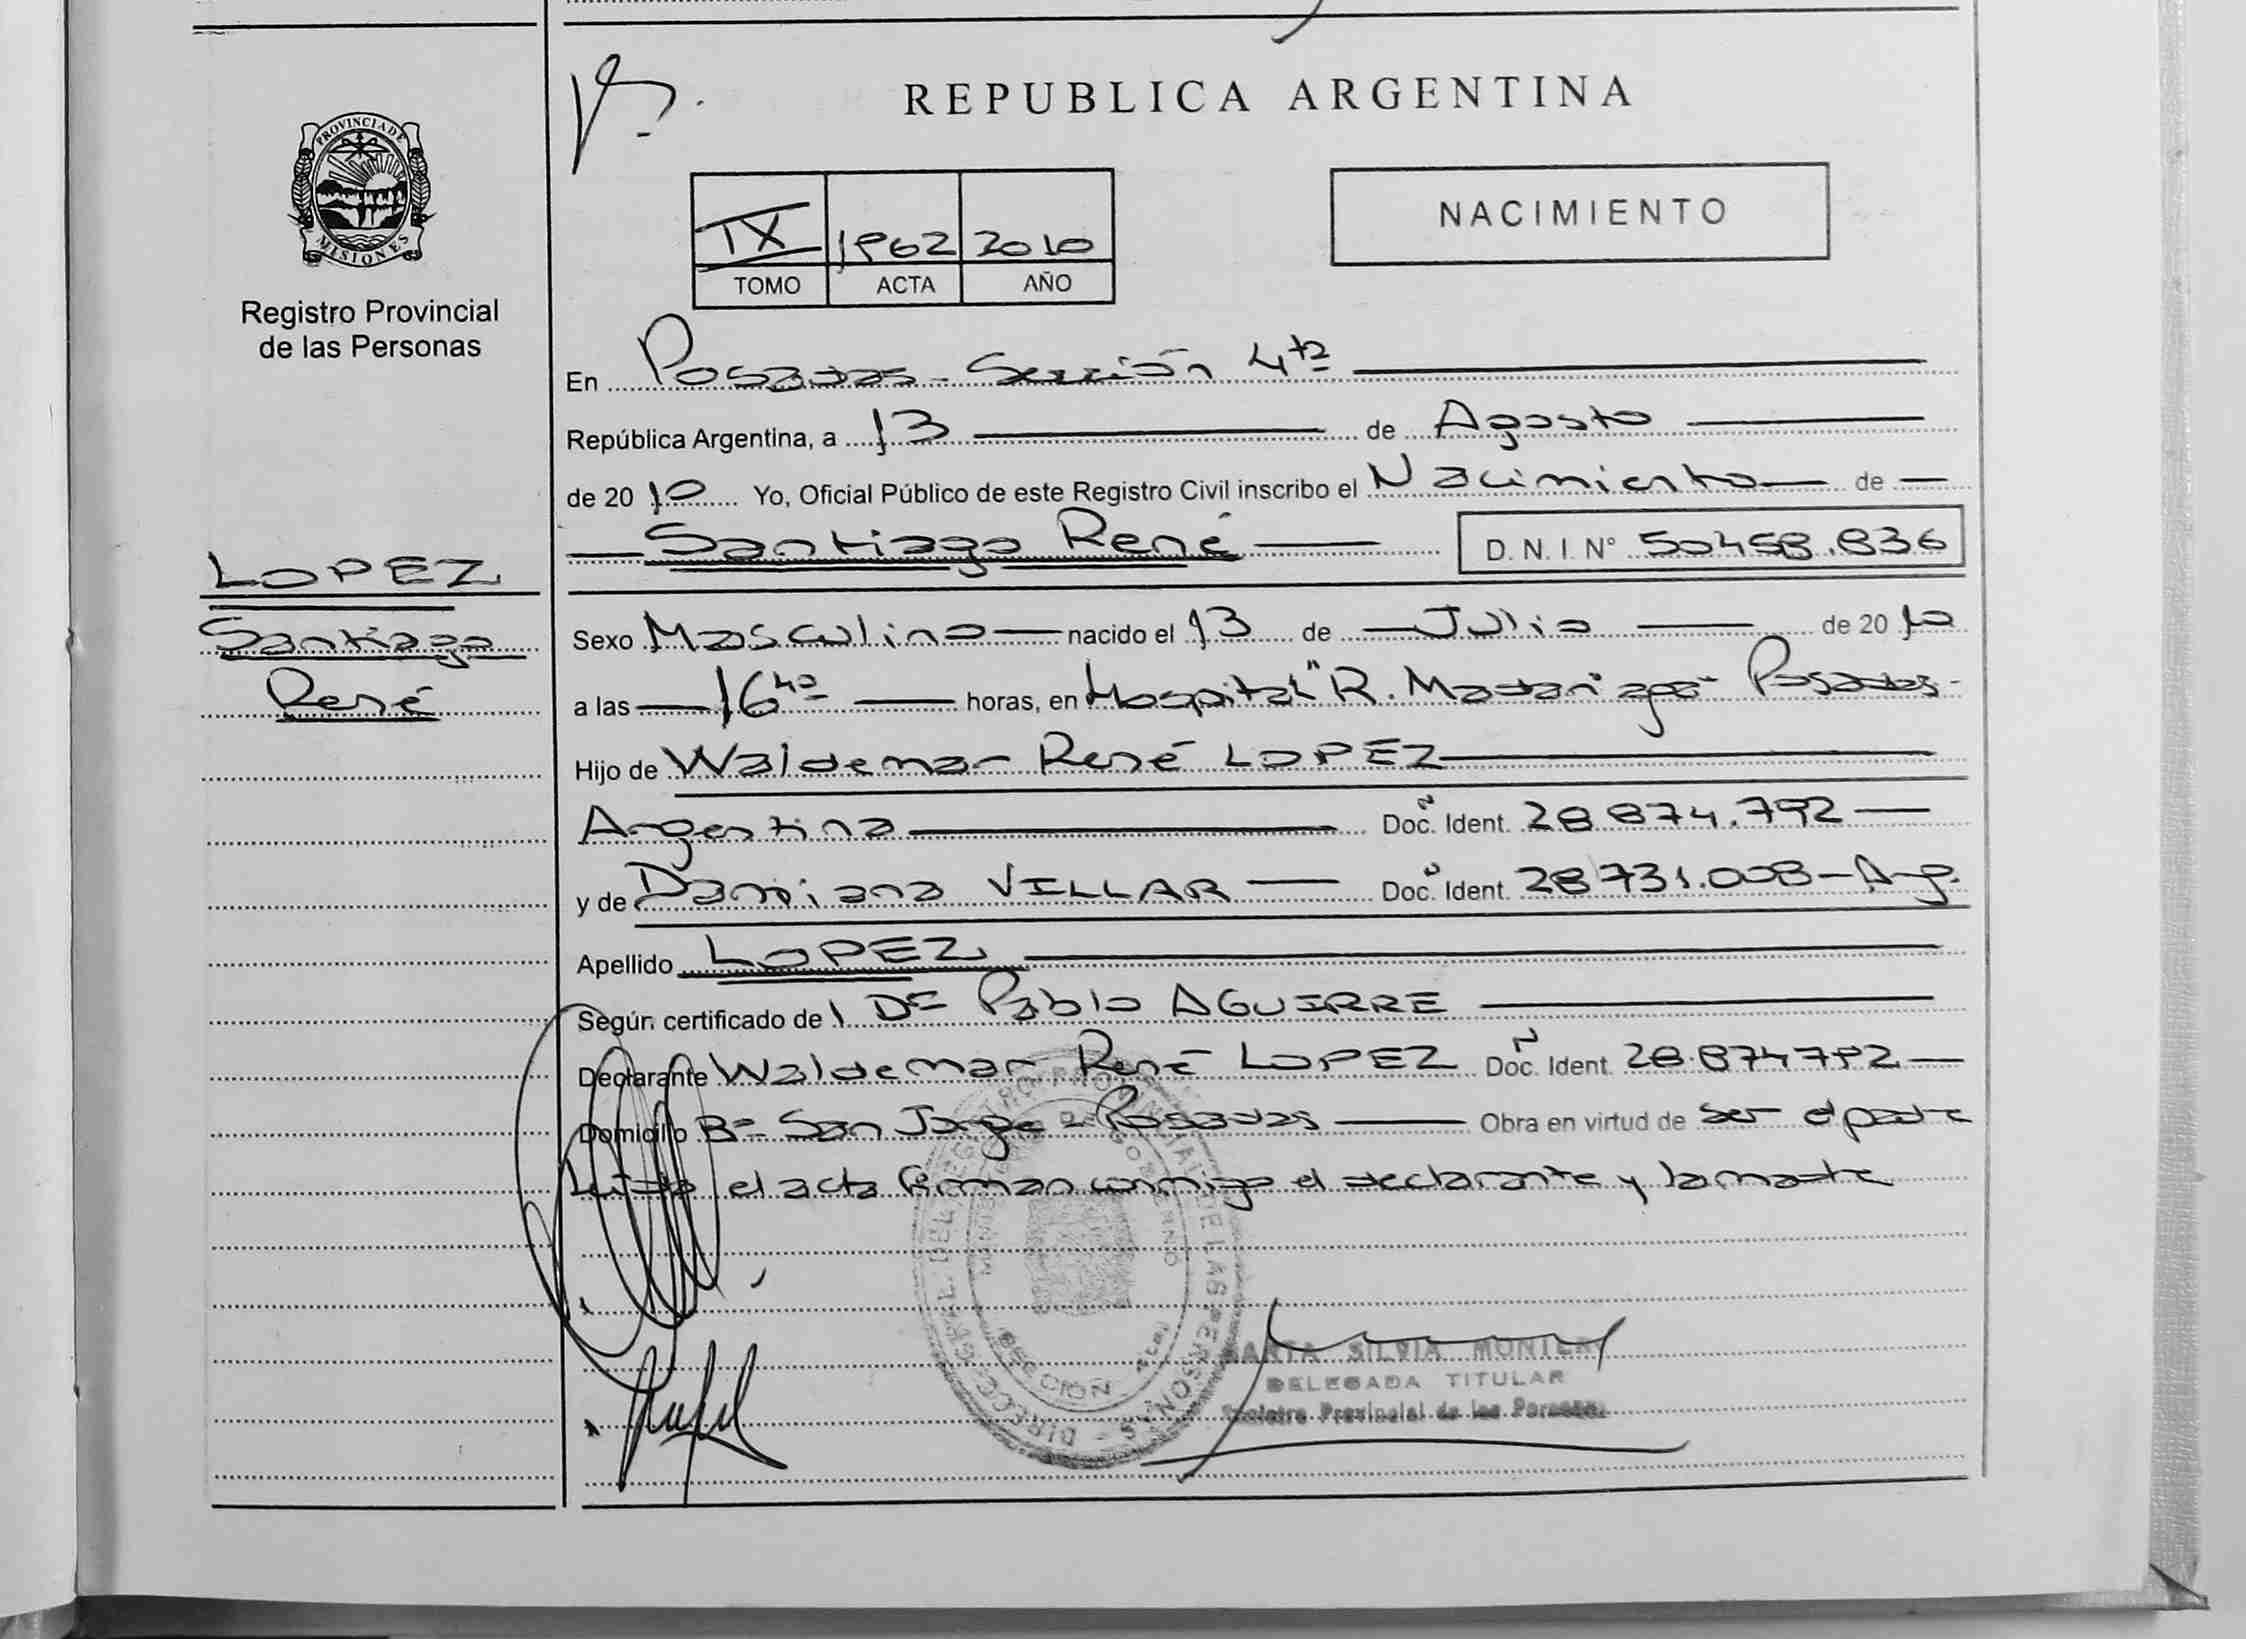 REPUBLICA ARGENTINA
PROVINCIA DE MISIONES
Registro Provincial
de las Personas
IX 1962 2010
TOMO ACTA AÑO
NACIMIENTO
En Posadas - Sección 4ta
República Argentina, a 13 de Agosto
de 2010 Yo, Oficial Público de este Registro Civil inscribo el Nacimiento de
Santiago René D. N. I. N° 50458.836
LOPEZ
Santiago
René
Sexo Masculino nacido el 13 de Julio de 2010
a las 16 40 horas, en Hospital "R. Madariaga" Posadas
Hijo de Waldemar René LOPEZ
Argentina Doc. Ident. 28 874.792
y de Damiana VILLAR Doc. Ident. 28 731.008 - Arg.
Apellido LOPEZ
Según certificado de Dr Pablo AGUIRRE
Declarante Waldemar René LOPEZ Doc. Ident. 28.874792
Domicilio Bº San Jorge - Posadas Obra en virtud de ser el padre
Leída el acta firman conmigo el declarante y la madre
MARTA SILVIA
DELEGADA TITULAR
Registro Provincial de las Personas